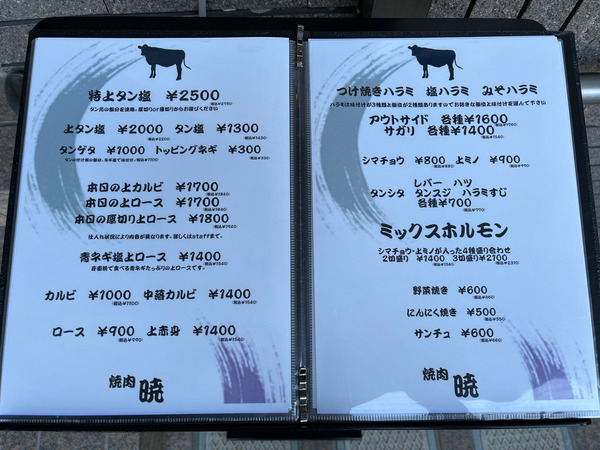 特上タン塩 ¥2500
(税込¥2750)
タン元の部分を使用。厚切りor薄切りからお選びください
上タン塩 ¥2000 タン塩 ¥1300
(税込¥2200) (税込¥1430)
タンゲタ ¥1000 トッピングネギ ¥300
(税込¥330)
本日の上カルビ ¥1700
本日の上ロース ¥1700
本日の厚切り上ロース ¥1800
仕入れ状況により内容が異なります。詳しくはstaffまで。
青ネギ塩上ロース ¥1400
(税込¥1540)
カルビ ¥1000 中落カルビ ¥1400
(税込¥1100) (税込¥1540)
ロース ¥900 上赤身 ¥1400
(税込¥990) (税込¥1540)
焼肉 暁
つけ焼きハラミ 塩ハラミ みそハラミ
ハラミは味付けが3種類と部位が2種類あります☆お好きな部位と味付けを選んで下さい
アウトサイド 各種¥1600
(税込¥1760)
サガリ 各種¥1400
(税込¥1540)
シマチョウ ¥800 上ミノ ¥900
(税込¥880) (税込¥990)
レバー ハツ
タンシタ タンスジ ハラミすじ
各種¥700
(税込¥770)
ミックスホルモン
シマチョウ・上ミノが入った4種盛り合わせ
2切盛り ¥1400 3切盛り¥2100
(税込¥1540) (税込¥2310)
野菜焼き ¥600
(税込¥660)
にんにく焼き ¥500
(税込¥550)
サンチュ ¥600
(税込¥660)
焼肉 暁